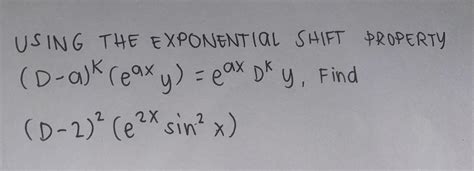 USING THE EXPONENTIAL SHIFT PROPERTY
(D-a)ᵏ (eᵃˣ y) = eᵃˣ Dᵏ y, Find
(D-2)² (e²ˣ sin² x)